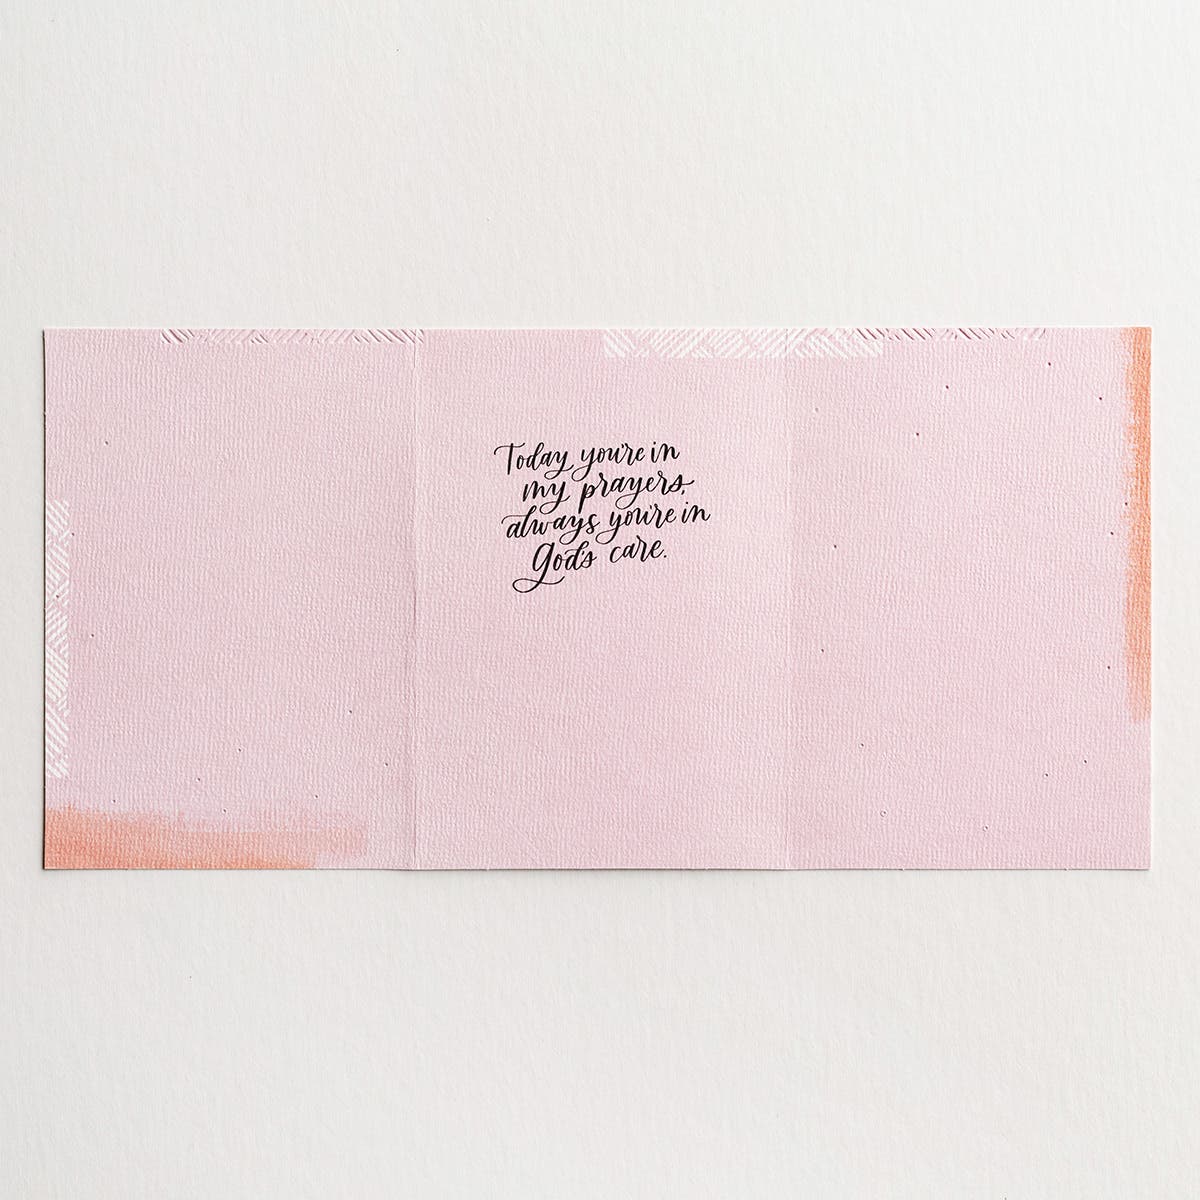 Today you're in
my prayers,
always you're in
God's care.